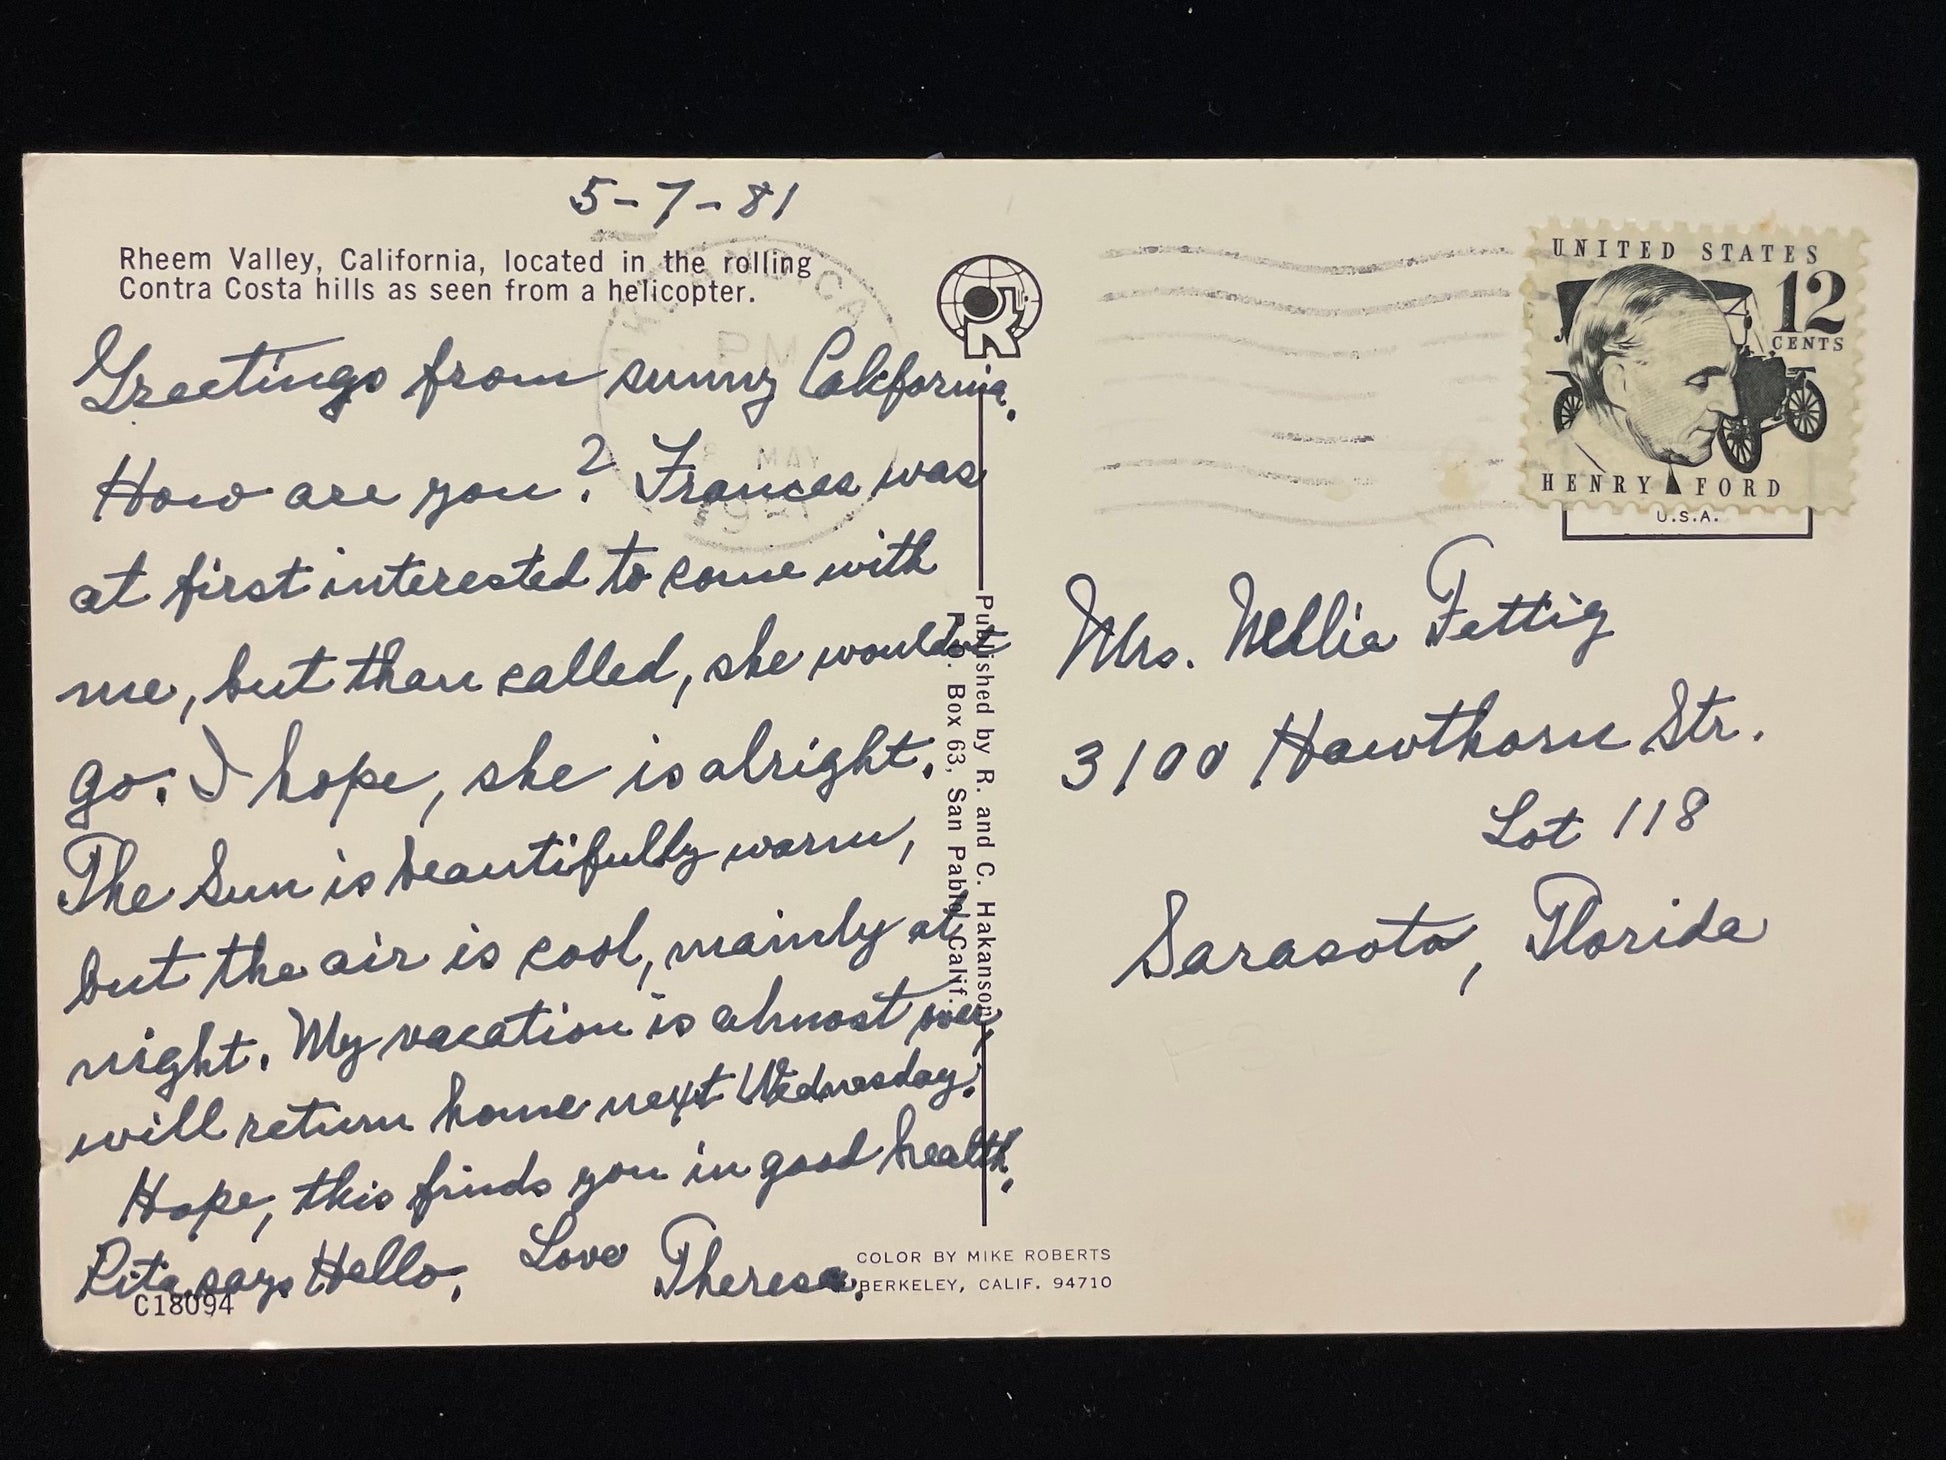 5-7-81
Rheem Valley, California, located in the rolling
Contra Costa hills as seen from a helicopter.
Greetings from sunny California.
How are you? Frances was
at first interested to come with
me, but than called, she wouldnt
go. I hope, she is alright.
The Sun is beautifully warm,
but the air is cool, mainly at
night. My vacation is almost over,
will return home next Wednesday.
Hope, this finds you in good health.
Rita says Hello.
Love Theresa.
C18094
Published by R. and C. Hakanson
P.O. Box 63, San Pablo, Calif.
COLOR BY MIKE ROBERTS
BERKELEY, CALIF. 94710
PM
8 MAY
1981
UNITED STATES
12
CENTS
HENRY FORD
U.S.A.
Mrs. Nellie Fettig
3100 Hawthorn Str.
Lot 118
Sarasota, Florida